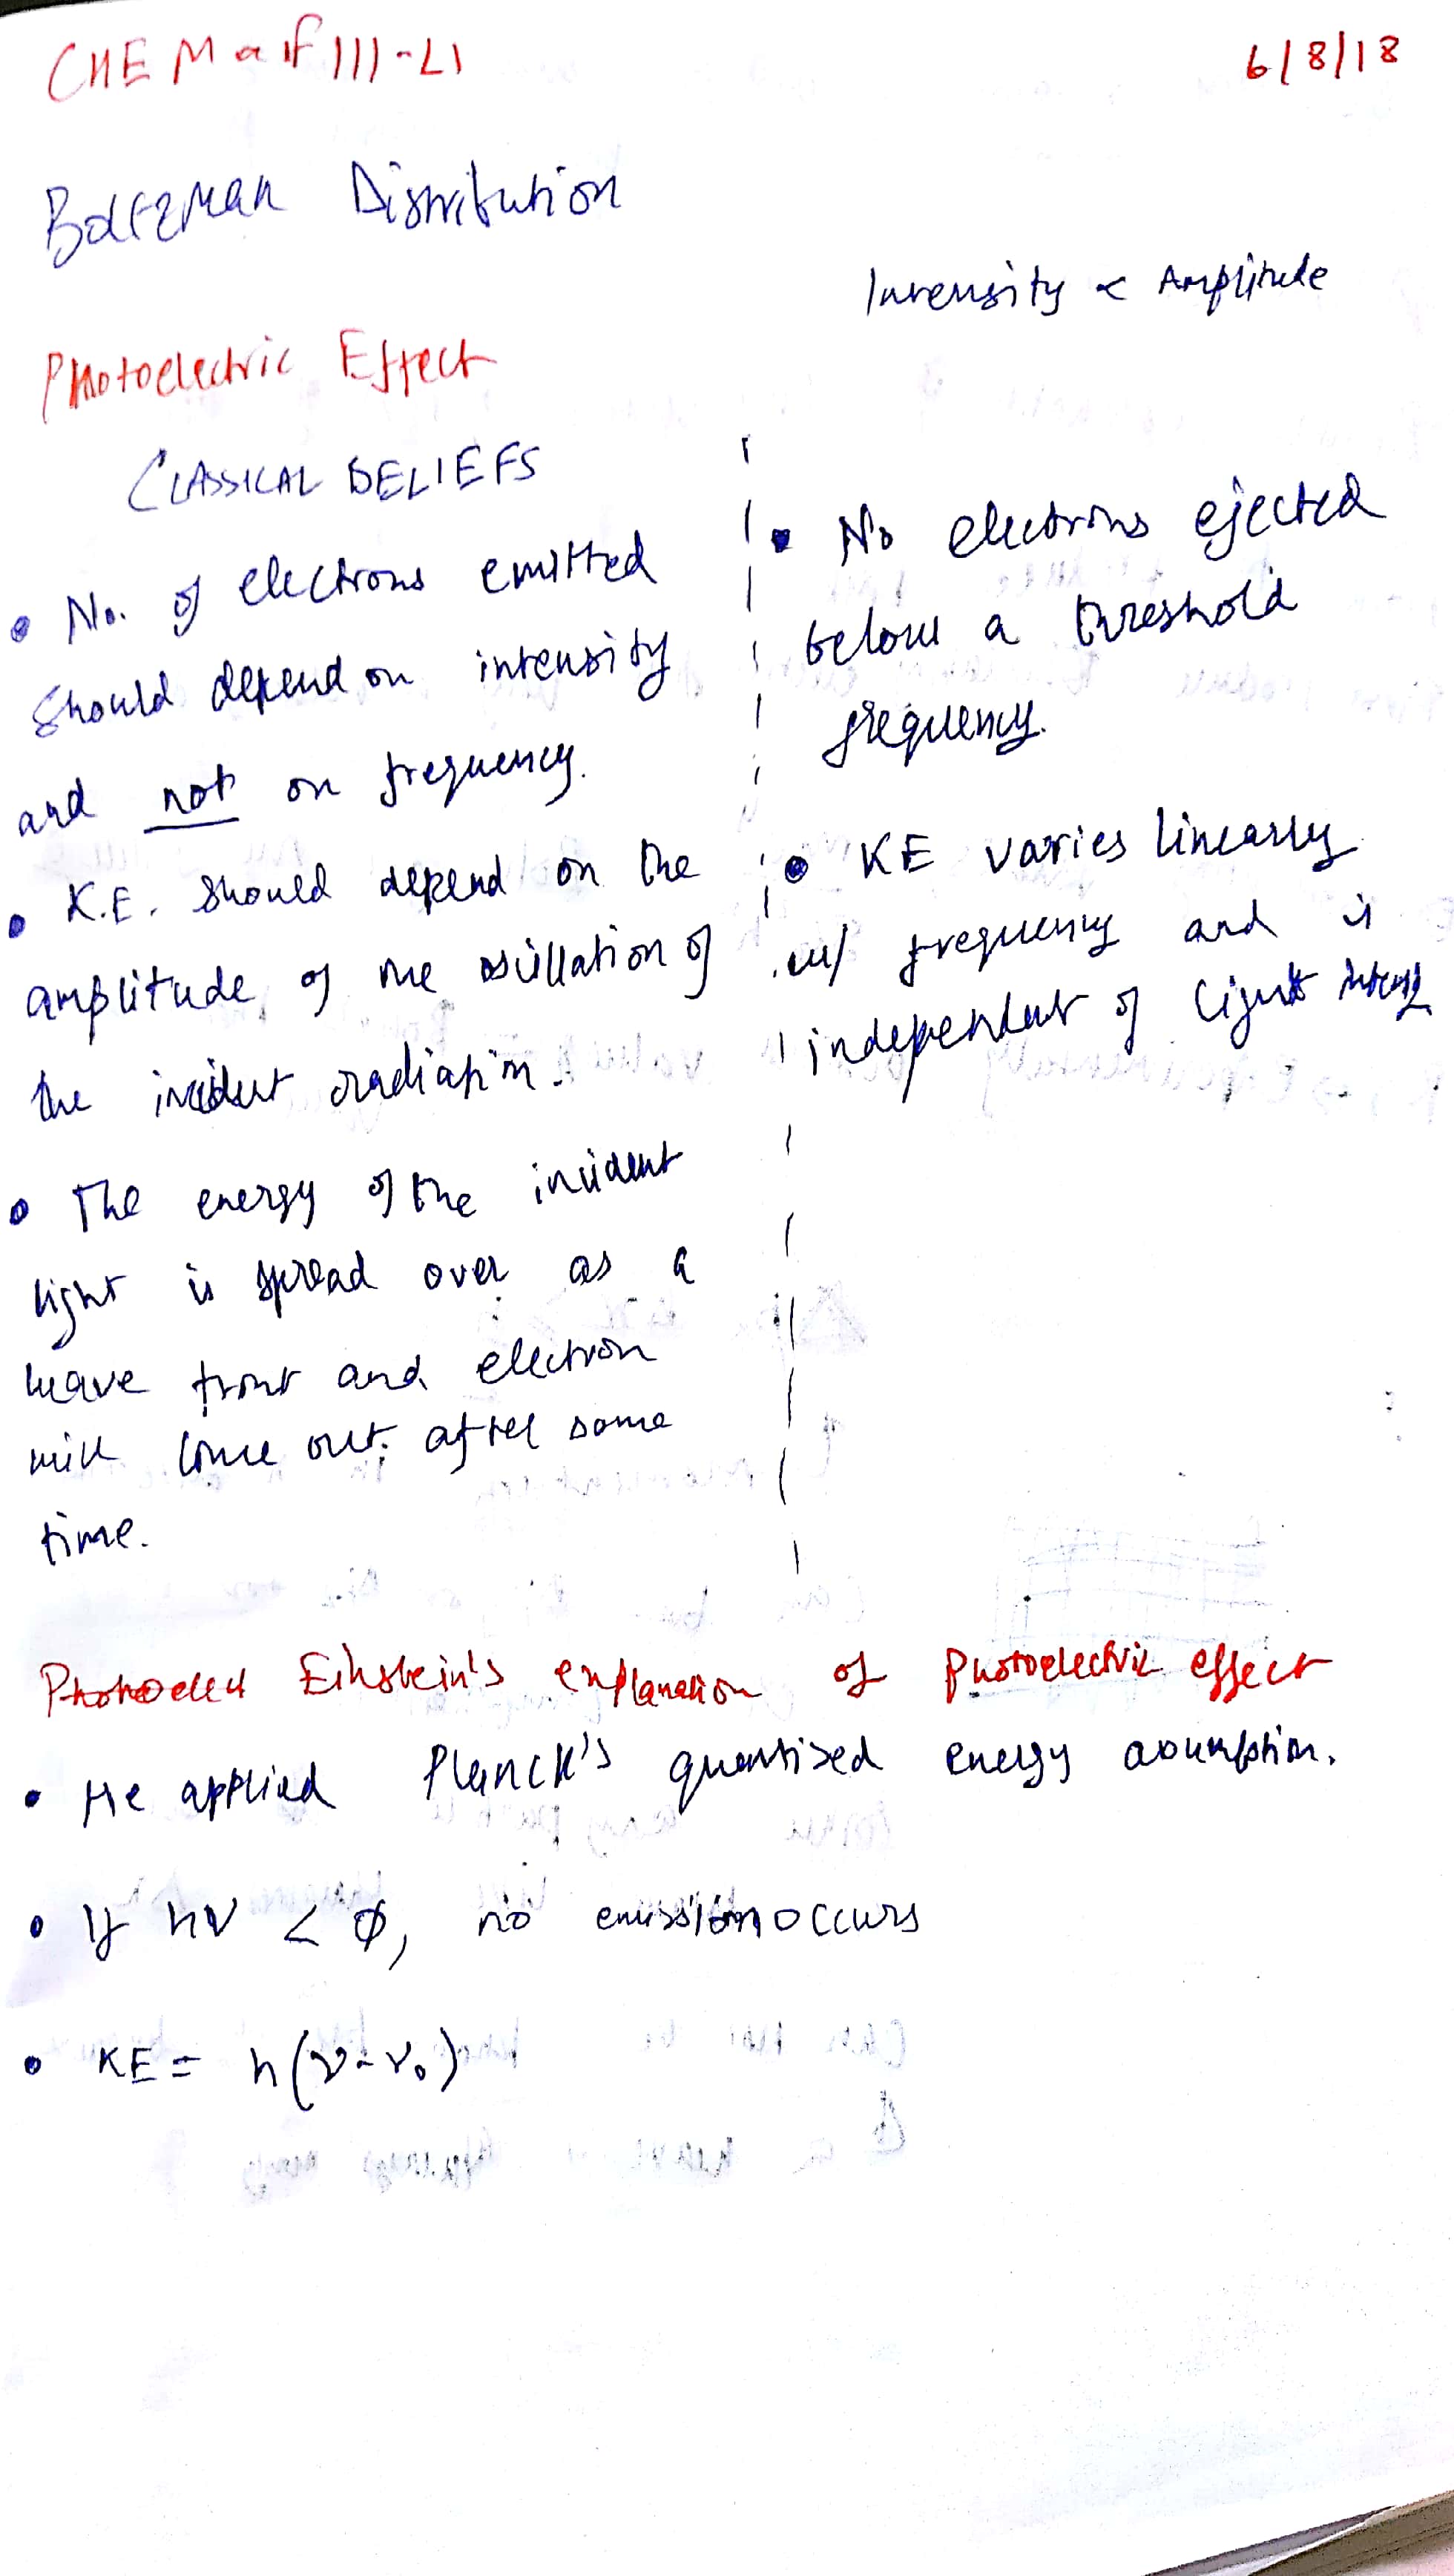 CHEM F111-L1
6/8/18
Boltzman Distribution
Intensity ∝ Amplitude
Photoelectric Effect
CLASSICAL BELIEFS
• No. of electrons emitted
should depend on intensity
and not on frequency.
• K.E. should depend on the
amplitude of the oscillation of
the incident radiation.
• The energy of the incident
light is spread over as a
wave front and electron
will come out after some
time.
• No electrons ejected
below a threshold
frequency.
• KE varies linearly
w/ frequency and is
independent of light
Einstein's explanation of Photoelectric effect
• He applied Planck's quantised energy assumption.
• If hν < ϕ, no emission occurs
• KE = h(ν-ν₀)